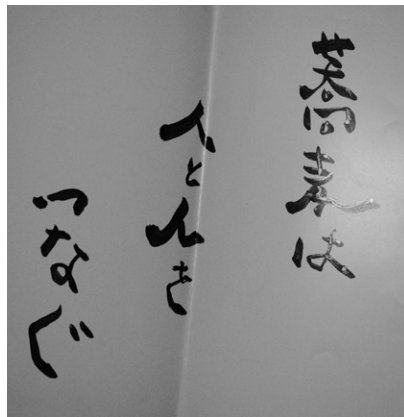 蕎麦は
人と人を
つなぐ